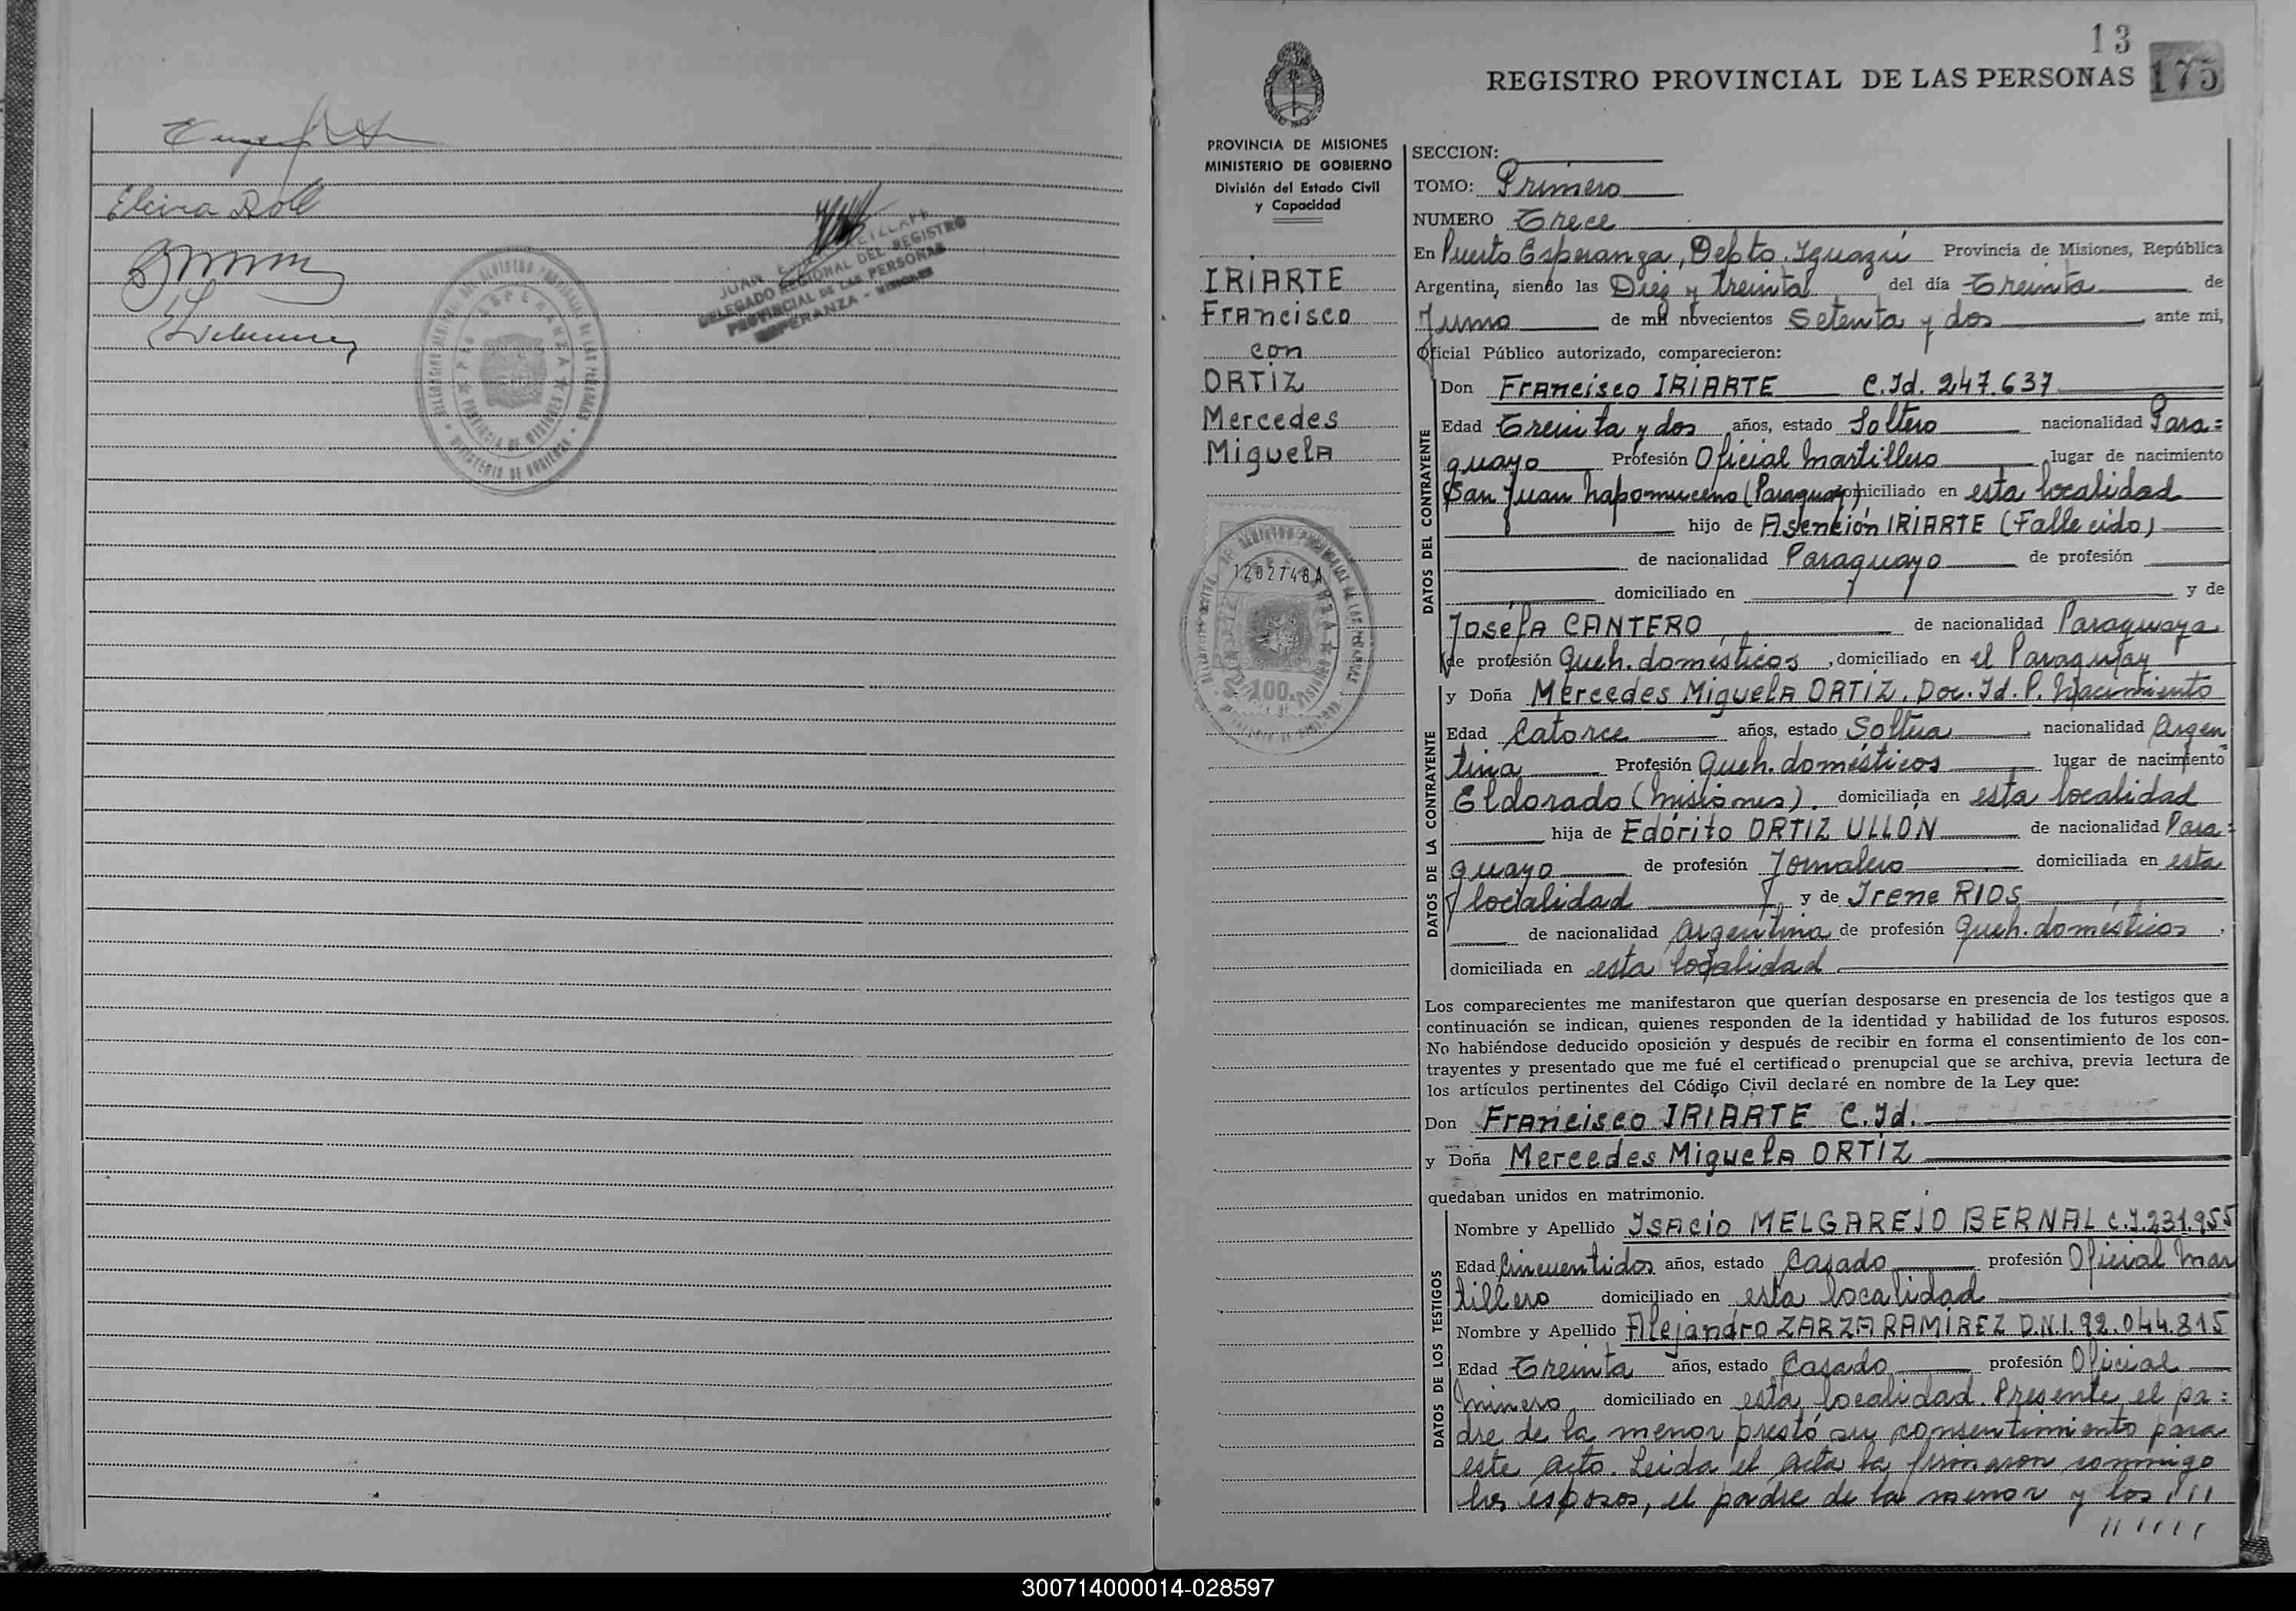 Elvira Roll
JUAN
DELEGADO REGIONAL DEL REGISTRO
PROVINCIAL DE LAS PERSONAS
ESPERANZA - MISIONES
13
REGISTRO PROVINCIAL DE LAS PERSONAS 175
PROVINCIA DE MISIONES
MINISTERIO DE GOBIERNO
División del Estado Civil
y Capacidad
IRIARTE
Francisco
con
ORTIZ
Mercedes
Miguela
12027464
100
SECCION:
TOMO: Primero
NUMERO Trece
En Puerto Esperanza, Depto. Iguazú Provincia de Misiones, República
Argentina, siendo las Diez y treinta del día Treinta de
Junio de mil novecientos Setenta y dos ante mi,
Oficial Público autorizado, comparecieron:
DATOS DEL CONTRAYENTE
Don Francisco IRIARTE C.Id. 247.637
Edad Treinta y dos años, estado Soltero nacionalidad Para=
guayo Profesión Oficial Martillero lugar de nacimiento
San Juan Napomuceno (Paraguay) domiciliado en esta localidad
hijo de Asención IRIARTE (Fallecido)
de nacionalidad Paraguayo de profesión
domiciliado en y de
Josefa CANTERO de nacionalidad Paraguaya
de profesión Queh. domésticos, domiciliado en el Paraguay
DATOS DE LA CONTRAYENTE
y Doña Mercedes Miguela ORTIZ. Doc. Id. P. Nacimiento
Edad Catorce años, estado Soltera nacionalidad Argen
tina Profesión Queh. domésticos lugar de nacimiento
Eldorado (Misiones). domiciliada en esta localidad
hija de Edórito ORTIZ ULLON de nacionalidad Para=
guayo de profesión Jornalero domiciliada en esta
localidad y de Irene RIOS
de nacionalidad Argentina de profesión Queh. domésticos,
domiciliada en esta localidad
Los comparecientes me manifestaron que querían desposarse en presencia de los testigos que a
continuación se indican, quienes responden de la identidad y habilidad de los futuros esposos.
No habiéndose deducido oposición y después de recibir en forma el consentimiento de los con-
trayentes y presentado que me fué el certificado prenupcial que se archiva, previa lectura de
los artículos pertinentes del Código Civil declaré en nombre de la Ley que:
Don Francisco IRIARTE C.Id.
y Doña Mercedes Miguela ORTIZ
quedaban unidos en matrimonio.
DATOS DE LOS TESTIGOS
Nombre y Apellido Isacio MELGAREJO BERNAL C.I.231.955
Edad Cincuentidos años, estado Casado profesión Oficial Mar
tillero domiciliado en esta localidad
Nombre y Apellido Alejandro ZARZA RAMIREZ D.N.I. 92.044.815
Edad Treinta años, estado Casado profesión Oficial
Minero domiciliado en esta localidad. Presente el pa=
dre de la menor prestó su consentimiento para
este acto. Leida el acta la firmaron conmigo
los esposos, el padre de la menor y los ///
//////
300714000014-028597